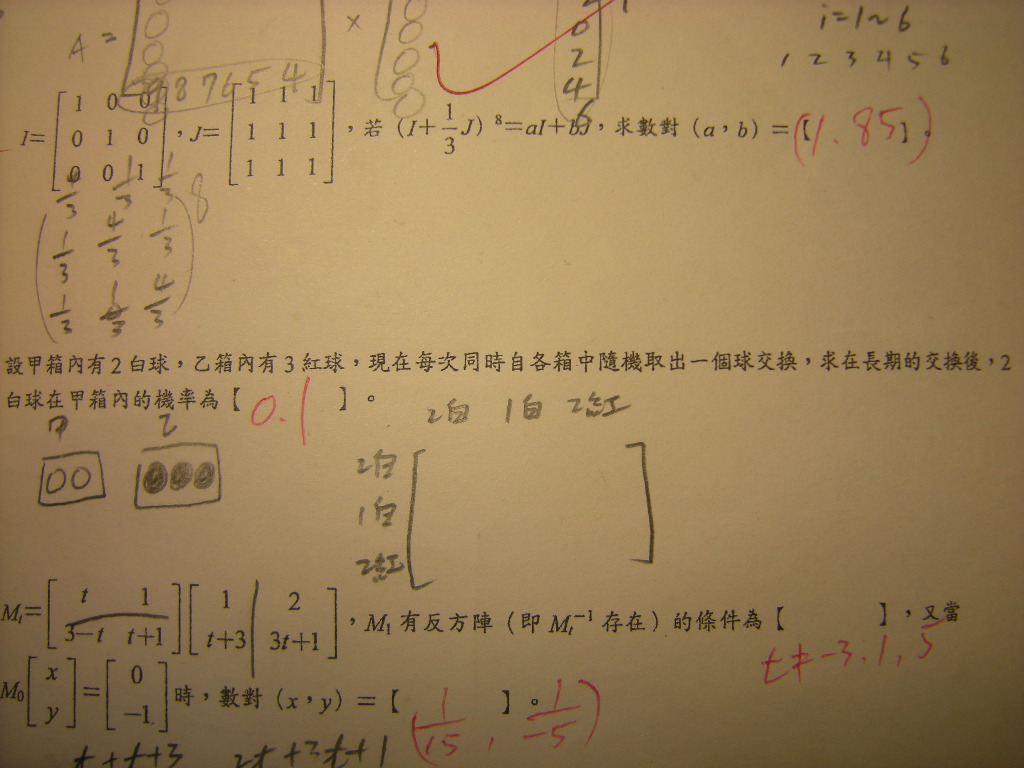 A = [ 0 0 0 8 7 6 5 4 ] × [ 0 0 0 0 0 2 4 6 ] i=1~6
1 2 3 4 5 6
I= [ 1 0 0 0 1 0 0 0 1 ] ,J= [ 1 1 1 1 1 1 1 1 1 ] ,若(I+1/3J)⁸=aI+bJ,求數對(a,b)=【(1.85)】。
( 4/3 1/3 1/3 1/3 4/3 1/3 1/3 1/3 4/3 ) 8
設甲箱內有2白球,乙箱內有3紅球,現在每次同時自各箱中隨機取出一個球交換,求在長期的交換後,2
白球在甲箱內的機率為【0.1】。
2白 1白 2紅
甲 乙
2白
1白
2紅
Mt= [ t 1 3−t t+1 ] [ 1 2 t+3 3t+1 ] ,M1有反方陣(即Mt⁻¹存在)的條件為【 】,又當
t≠-3.1,5
M0 [ x y ] = [ 0 −1 ] 時,數對(x,y)=【(1/15, 1/-5)】。
t+t+3 2t+3t+1